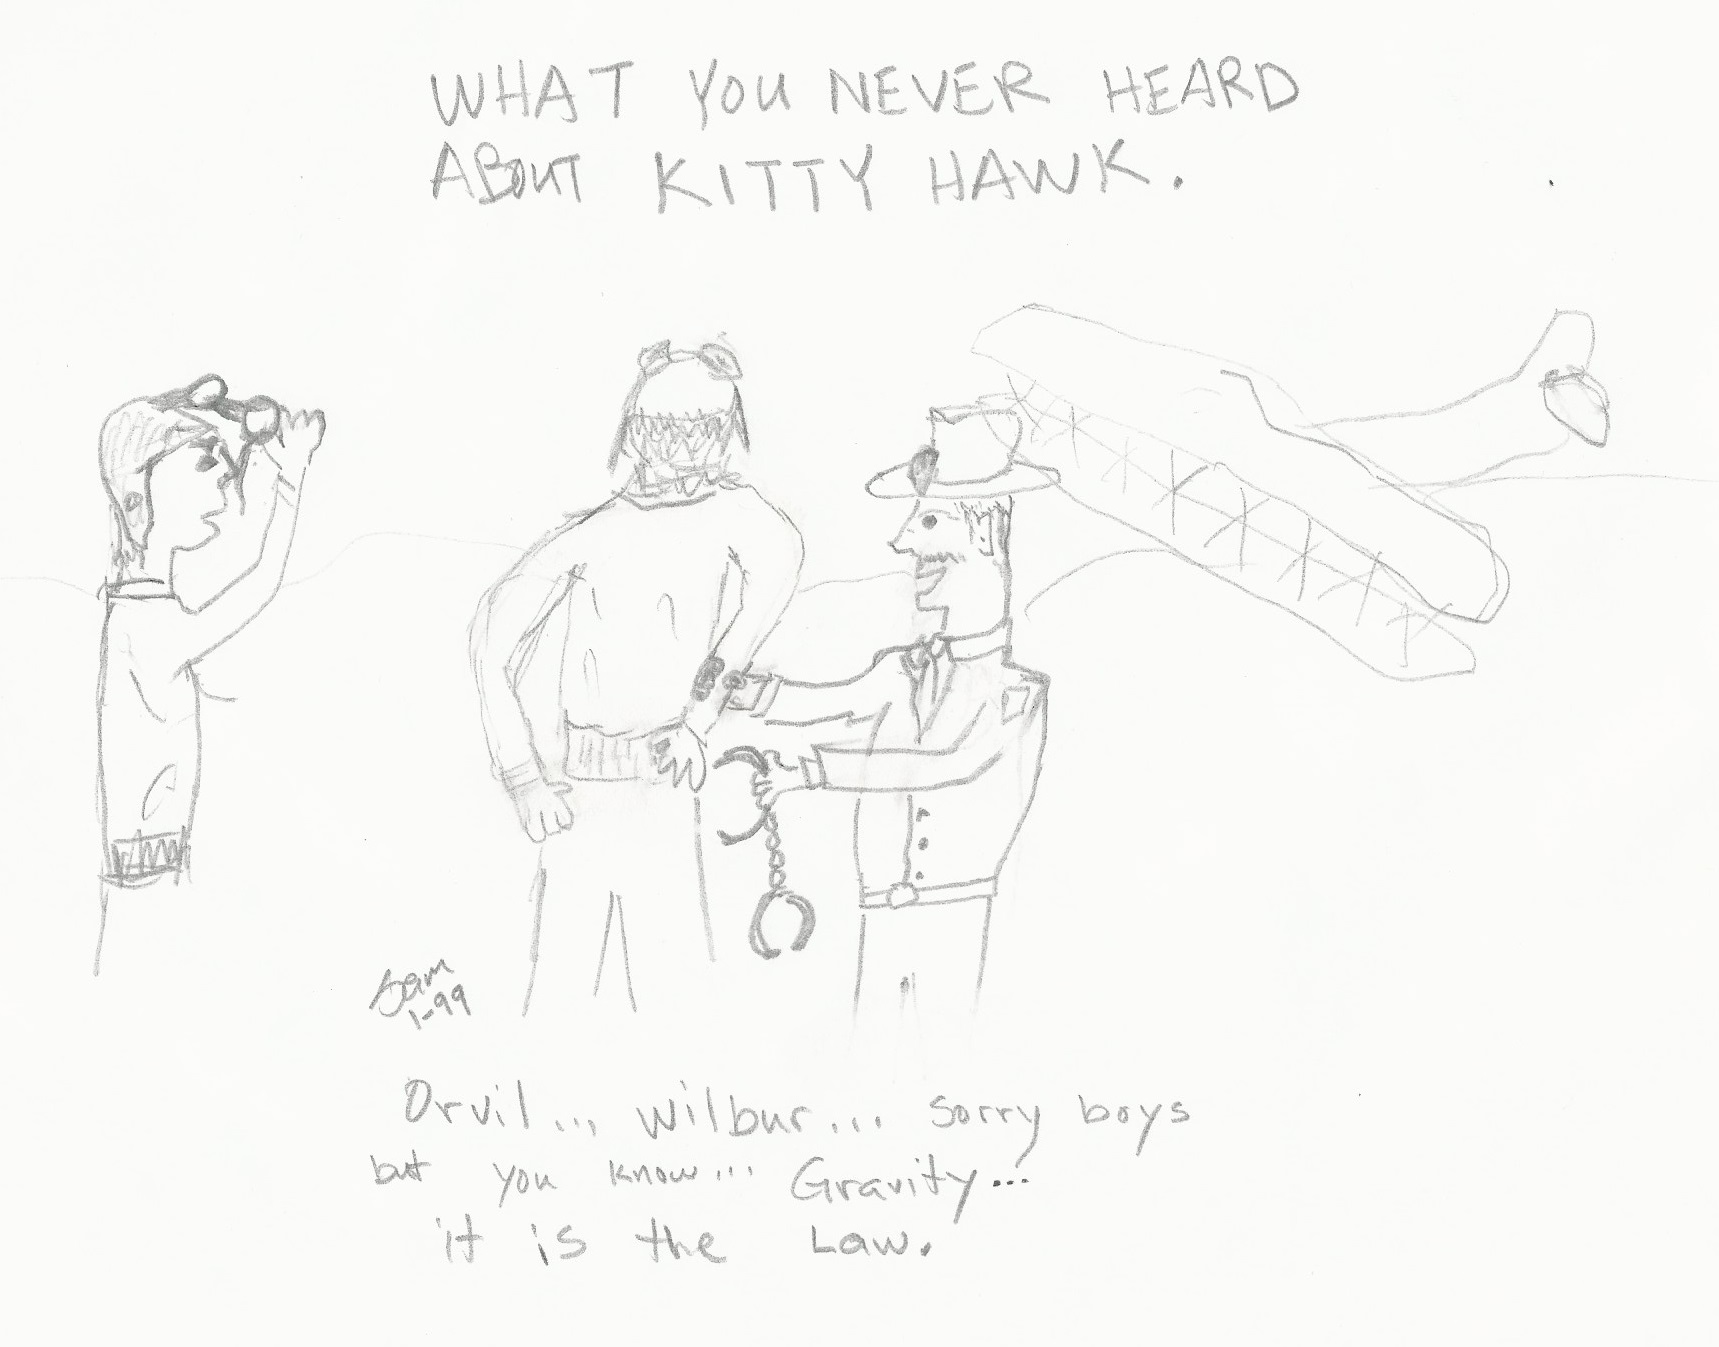 WHAT YOU NEVER HEARD
ABOUT KITTY HAWK.
Sam
1-99
Orvil... Wilbur... sorry boys
but you know... Gravity...
it is the Law.